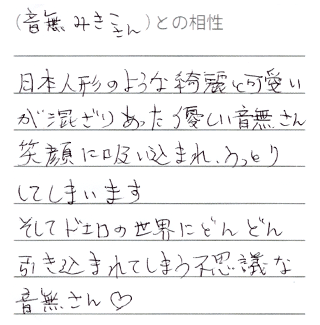 (音無みきこさん)との相性
日本人形のような綺麗と可愛い
が混ざりあった優しい音無さん
笑顔に吸い込まれ、うっとり
してしまいます
そしてドエロの世界にどんどん
引き込まれてしまう不思議な
音無さん♡